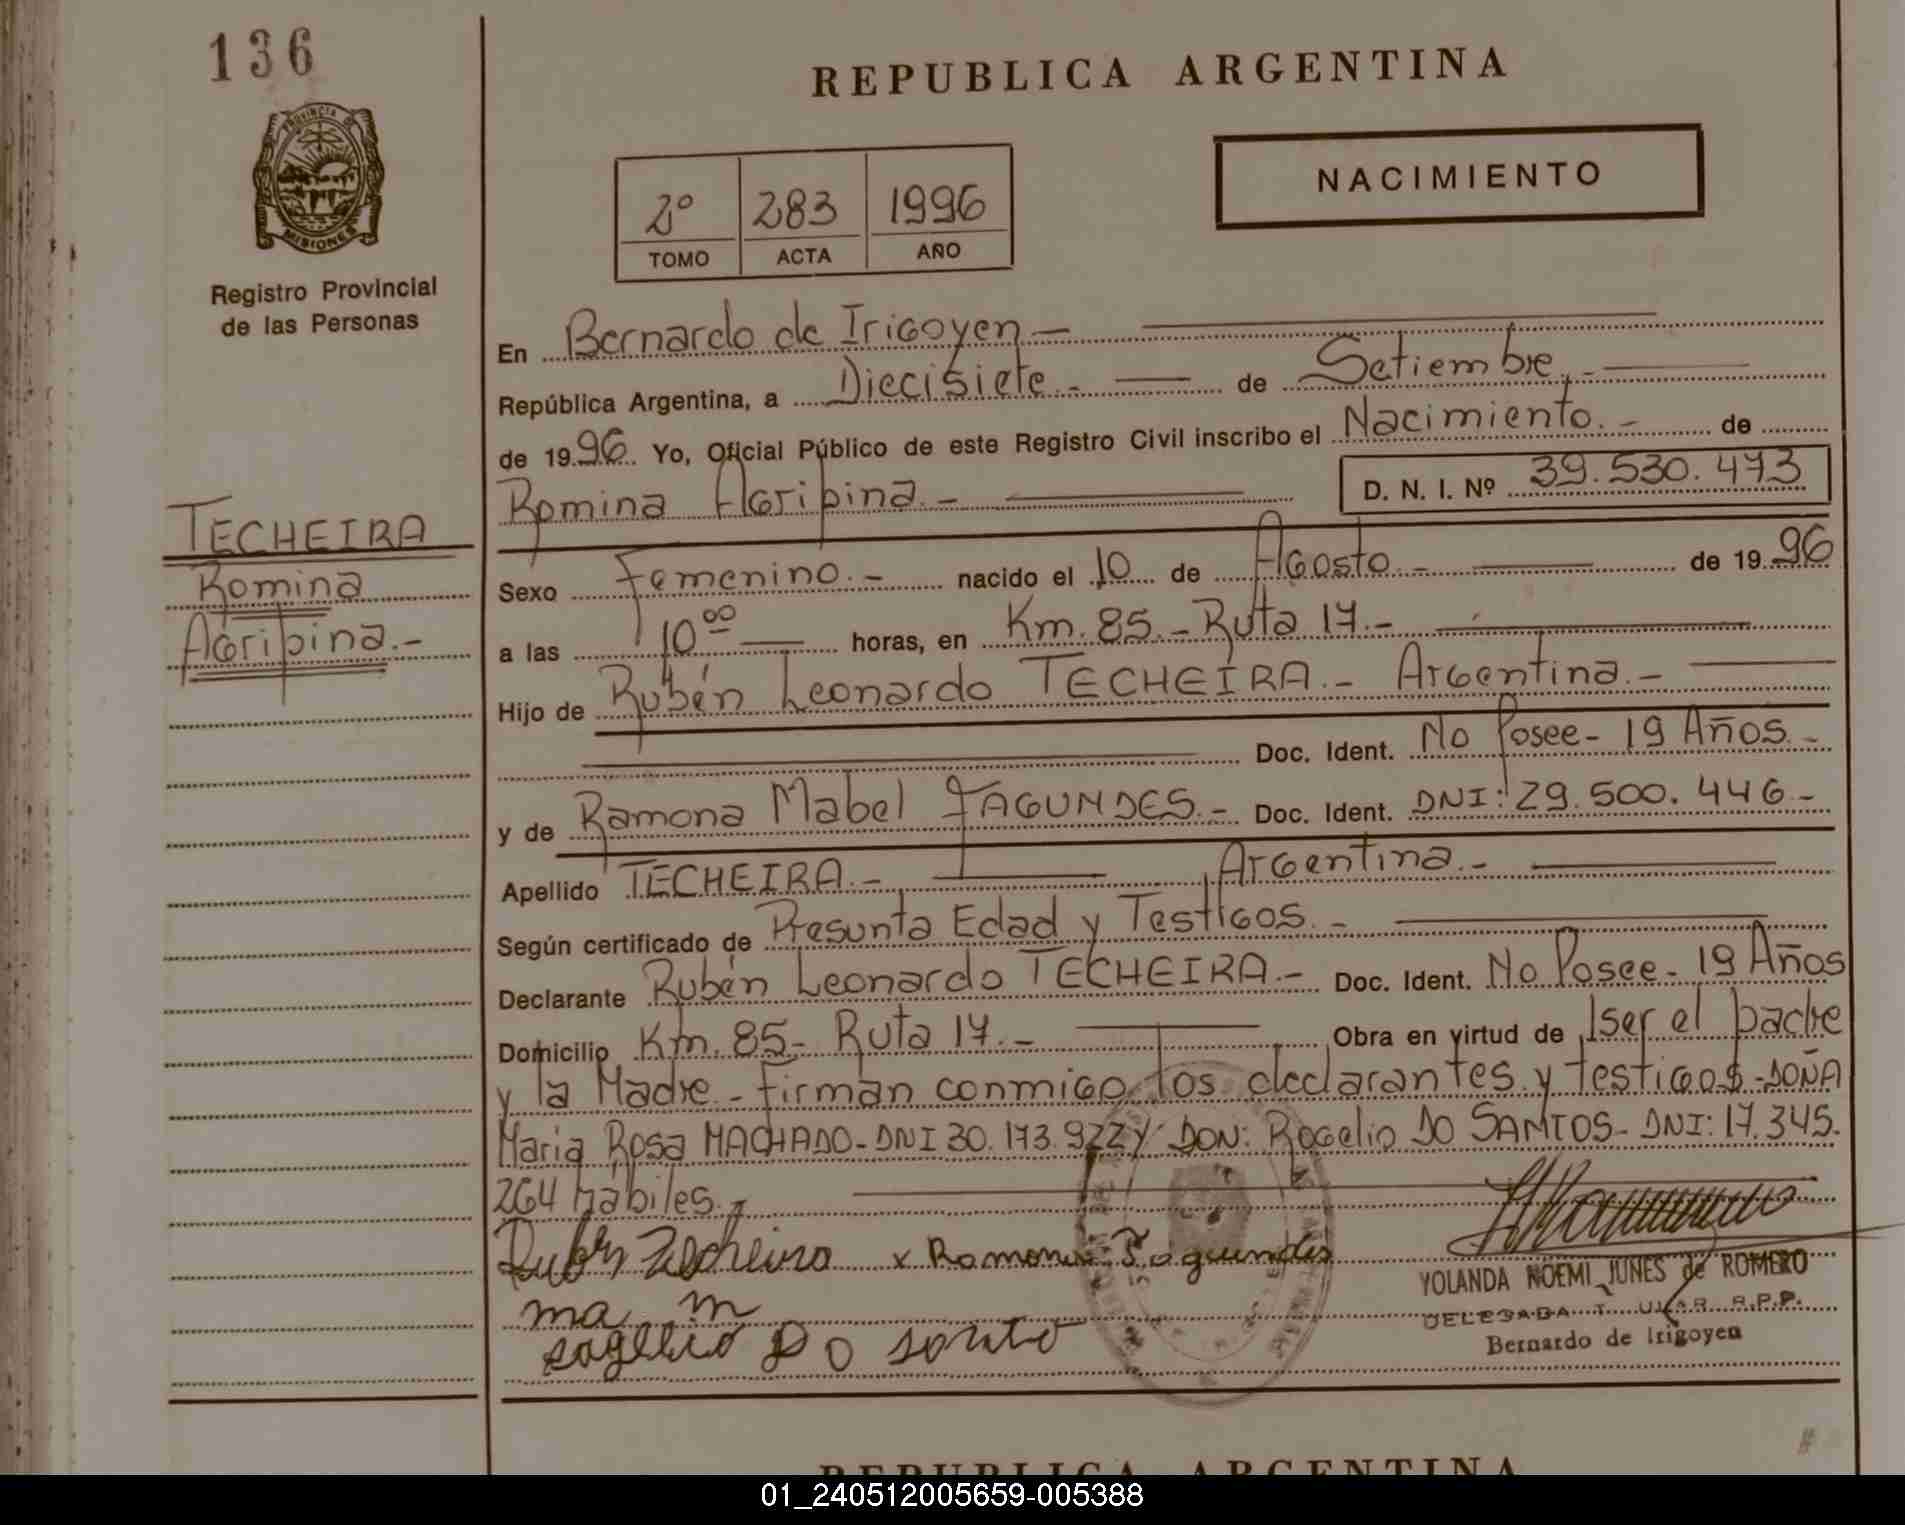 136
REPUBLICA ARGENTINA
NACIMIENTO
2º 283 1996
TOMO ACTA AÑO
PROVINCIA DE
MISIONES
Registro Provincial
de las Personas
En Bernardo de Irigoyen.-
República Argentina, a Diecisiete.- de Setiembre.-
de 1996. Yo, Oficial Público de este Registro Civil inscribo el Nacimiento.- de
Romina Agripina.- D. N. I. Nº 39.530.473
TECHEIRA
Romina
Agripina.-
Sexo Femenino.- nacido el 10 de Agosto.- de 1996
a las 10 00 horas, en Km. 85.- Ruta 17.-
Hijo de Rubén Leonardo TECHEIRA.- Argentina.-
Doc. Ident. No Posee- 19 Años.-
y de Ramona Mabel FAGUNDES.- Doc. Ident. DNI: 29.500.446-
Apellido TECHEIRA.- Argentina.-
Según certificado de Presunta Edad y Testigos.-
Declarante Rubén Leonardo TECHEIRA.- Doc. Ident. No Posee- 19 Años
Domicilio Km. 85- Ruta 17.- Obra en virtud de ser el padre
y la Madre.- firman conmigo los declarantes y testigos-DOÑA
Maria Rosa MACHADO-DNI 30.173.922 y DON: Rogelio DO SANTOS- DNI: 17.345.
264 hábiles.-
Ruben Techeira x Ramona Faguindes
ma m
Rogelio DO santo
YOLANDA NOEMI JUNES de ROMERO
DELEGADA TITULAR R.P.P.
Bernardo de Irigoyen
REPUBLICA ARGENTINA
01_240512005659-005388